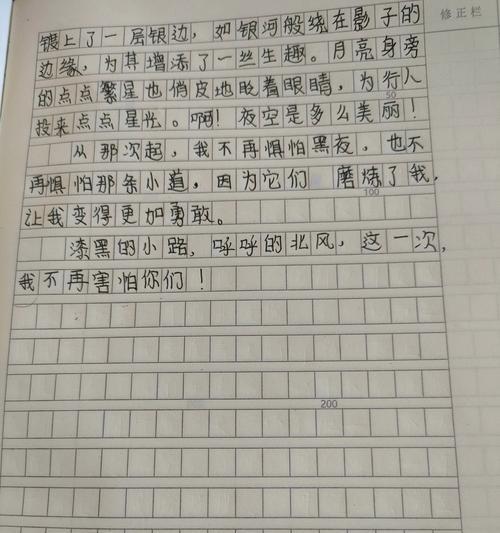 修正栏
镀上了一层银边，如银河般绕在影子的
边缘，为其增添了一丝生趣。月亮身旁
的点点繁星也俏皮地眨着眼睛，为行人
50
投来点点星光。啊！夜空是多么美丽！
从那次起，我不再惧怕黑夜，也不
再惧怕那条小道，因为它们 磨炼了我，
100
让我变得更加勇敢。
漆黑的小路，呼呼的北风，这一次，
我不再害怕你们！
200